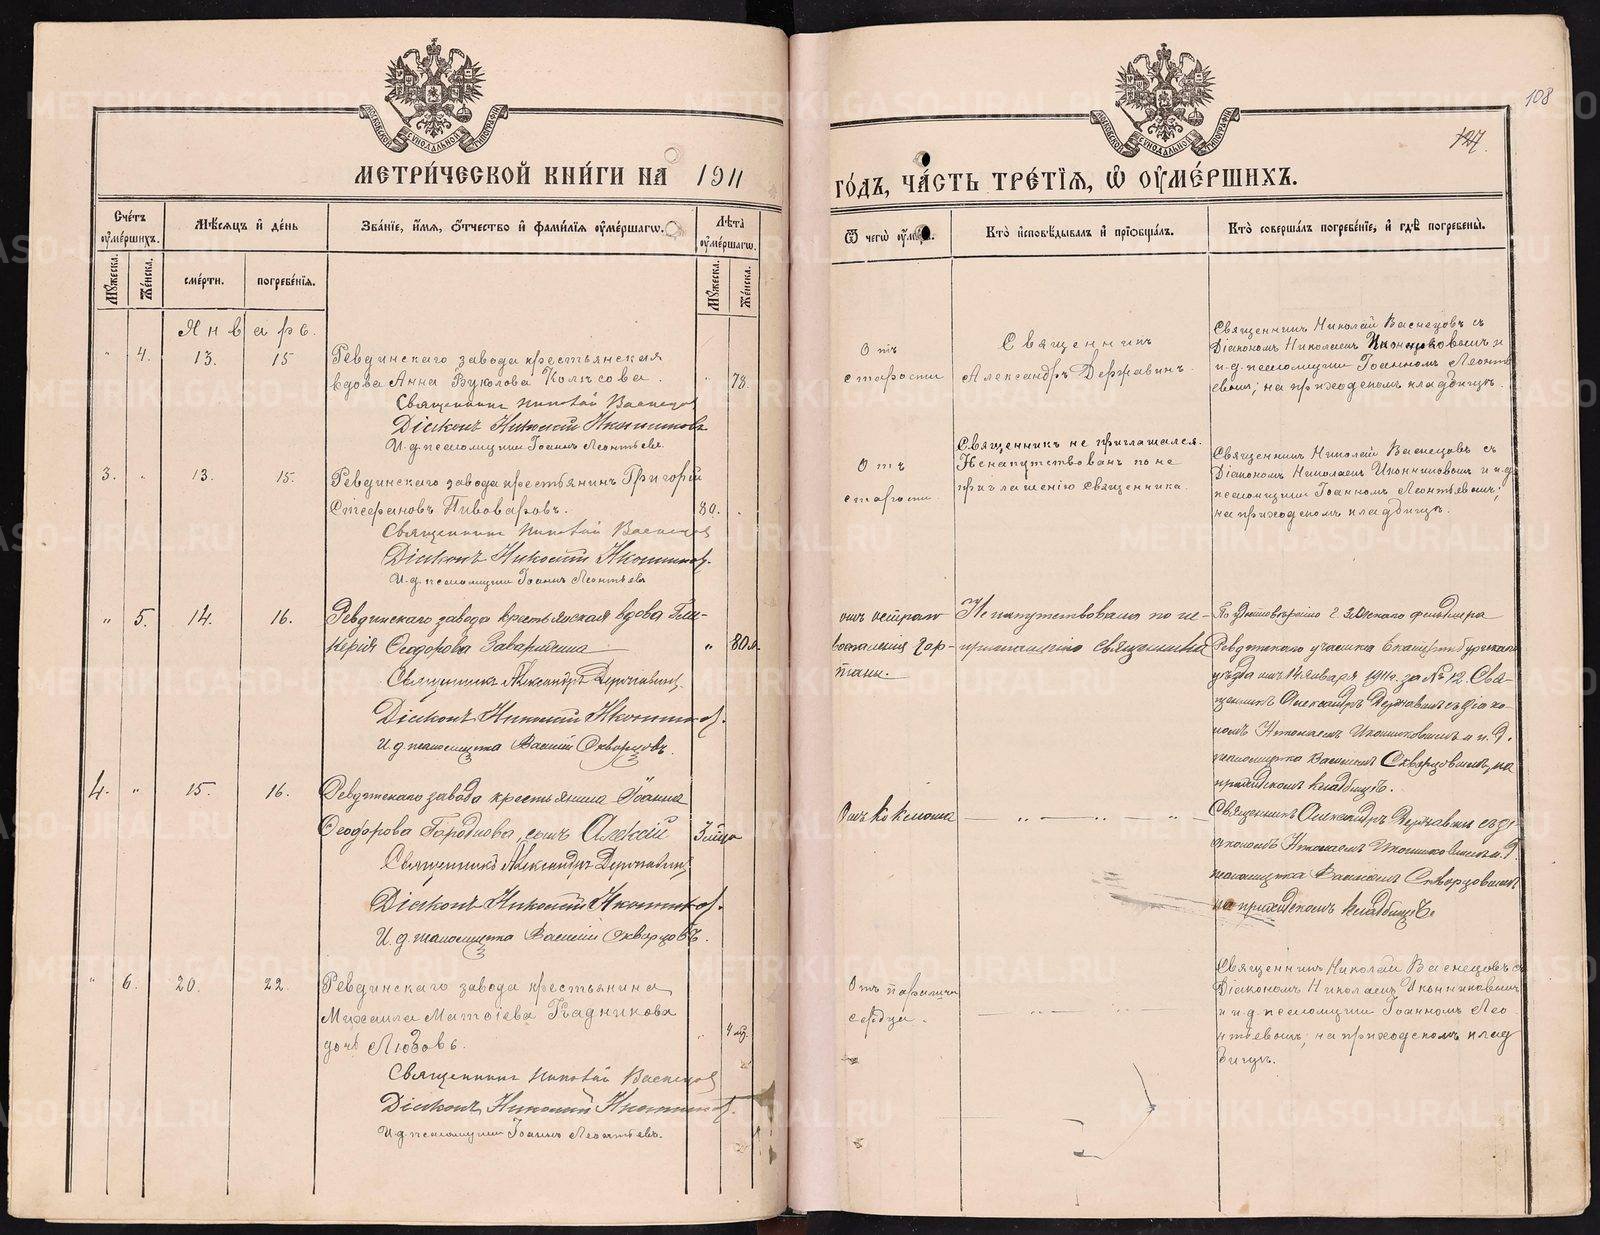 108
127.
МЕТРИ́ЧЕСКОЙ КНИ́ГИ НА 1911
ГО́ДЪ, ЧА́СТЬ ТРЕ́ТІѦ, Ѡ҆ ОУ҆МЕ́РШИХЪ.
Сче́тъ оу҆ме́ршихъ.
Мѣ́сяцъ и҆ де́нь
Зва́нїе, и҆́мѧ, ѻ҆́тчество и҆ фами́лїѧ оу҆ме́ршагѡ.
Лѣ́та оу҆ме́ршагѡ.
Ѿ чегѡ̀ оу҆́меръ.
Кто̀ и҆сповѣ́дывалъ и҆ прїѡбща́лъ.
Кто̀ соверша́лъ погребе́нїе, и҆ гдѣ̀ погребены̀.
Мꙋ́жеска.
Же́нска.
сме́рти.
погребе́нїя.
Мꙋ́жеска.
Же́нска.
Январь.
" 4. 13. 15
Ревдинскаго завода крестьянская
вдова Анна Вуколова Колѣсова. 78.
Священникъ Николай Васнецов
Діаконъ Николай Иконников
И.д. псаломщика Іоаннъ Леонтьевъ
Отъ
старости
Священникъ
Александръ Державинъ.
Священникъ Николай Васнецовъ съ
Діакономъ Николаемъ Иконниковымъ и
и.д. псаломщика Іоанномъ Леонть
евымъ; на приходскомъ кладбищѣ.
3. " 13. 15.
Ревдинскаго завода крестьянинъ Григорій
Стефановъ Пивоваровъ. 80.
Священникъ Николай Васнецов
Діаконъ Николай Иконников.
И.д. псаломщика Іоаннъ Леонтьевъ
Отъ
старости.
Священникъ не приглашался.
Ненапутствованъ по не
приглашенію священника.
Священникъ Николай Васнецовъ съ
Діакономъ Николаемъ Иконниковымъ и и.д.
псаломщика Іоанномъ Леонтьевымъ;
на приходскомъ кладбищѣ.
" 5. 14. 16.
Ревдинскаго завода крестьянская вдова Гли-
керія Ѳеодорова " 80 л.
Священникъ Александръ Державинъ
Діаконъ Николай Иконников.
И.д. псаломщика Василій Скворцовъ.
отъ остраго
воспаленія гор-
тани.
Не напутствована по не-
приглашенію священника
По удостовѣренію г. Земскаго фельдшера
Ревдинскаго участка Екатеринбургскаго
уѣзда отъ 14 Января 1911 г. за № 12. Свя-
щенникъ Александръ Державинъ съ діако-
номъ Николаемъ Иконниковымъ и и.д.
псаломщика Василіемъ Скворцовымъ, на
приходскомъ кладбищѣ.
4. " 15. 16.
Ревдинскаго завода крестьянина Іоанна
Ѳеодорова сынъ Алексій 3 мѣсца
Священникъ Александръ Державинъ
Діаконъ Николай Иконников.
И.д. псаломщика Василій Скворцовъ.
Отъ коклюша
— " — " — " —
Священникъ Александръ Державинъ съ ді
акономъ Николаемъ Иконниковымъ и и.д.
псаломщика Василіемъ Скворцовымъ
на приходскомъ кладбищѣ
" 6. 20. 22.
Ревдинскаго завода крестьянина
Михаила Матѳіева Кадникова
дочь Любовь. 4 мѣ.
Священникъ Николай Васнецов
Діаконъ Николай Иконников.
И.д. псаломщика Іоаннъ Леонтьевъ.
Отъ паралича
сердца.
— " — " —
Священникъ Николай Васнецовъ съ
Діакономъ Николаемъ Иконниковымъ
и и.д. псаломщика Іоанномъ Лео
нтьевымъ; на приходскомъ клад
бищѣ.
METRIKI.GASO-URAL.RU